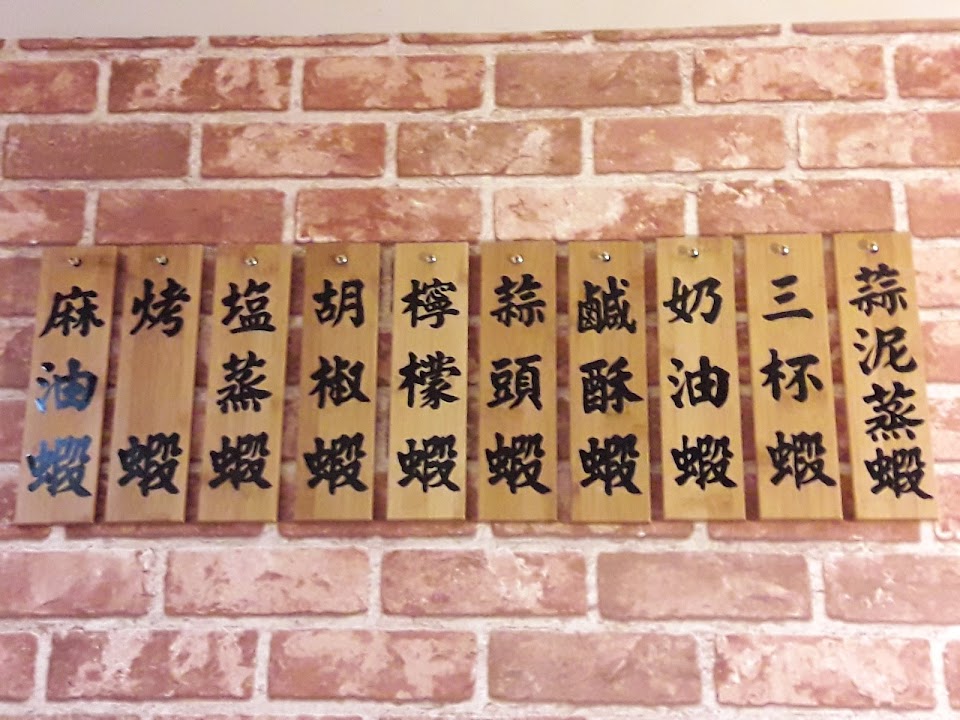 蒜泥蒸蝦
三杯蝦
奶油蝦
鹹酥蝦
蒜頭蝦
檸檬蝦
胡椒蝦
塩蒸蝦
烤蝦
麻油蝦